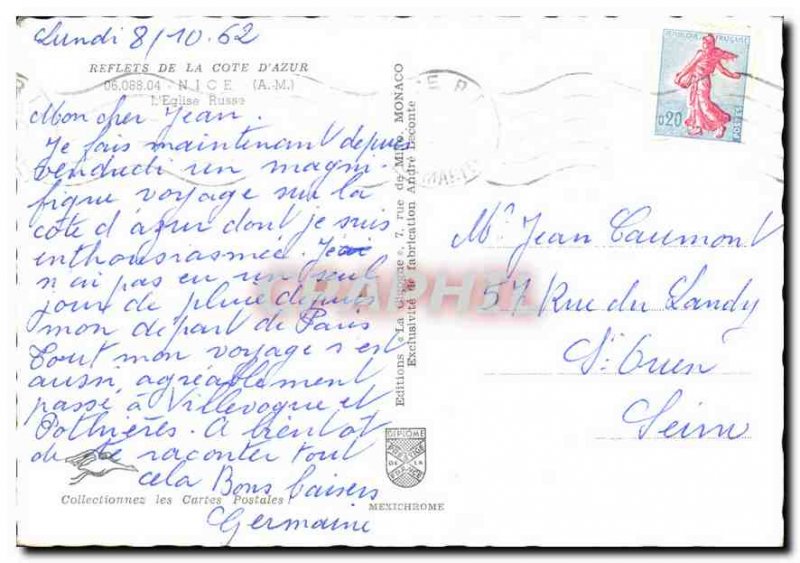 Lundi 8/10.62
REFLETS DE LA COTE D'AZUR
06.088.04 - NICE (A.-M.)
L'Eglise Russe
Mon cher Jean.
Je fais maintenant depuis
vendredi un magni-
fique voyage sur la
côte d'azur dont je suis
enthousiasmée. Je
n'ai pas eu un seul
jour de pluie depuis
mon départ de Paris
Tout mon voyage s'est
aussi agréablement
passé à Villevoque et
Pothières. A bientôt
de te raconter tout
cela Bons baisers
Germaine
Collectionnez les Cartes Postales
Editions «La Cigogne», 7, rue de Millo, MONACO
Exclusivité de fabrication André Leconte
DIPLOME
PRESTIGE
DE LA
FRANCE
MEXICHROME
REPUBLIQUE FRANÇAISE
0,20
POSTES
Mr Jean Caumont
57 Rue du Landy
St. Ouen
Seine
CARTAPHIL